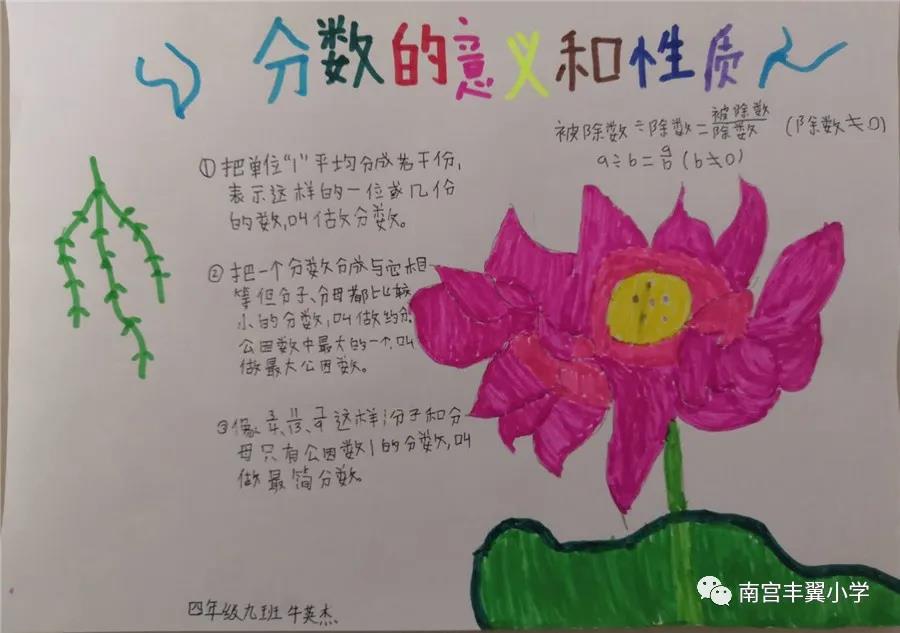 分数的意义和性质
被除数÷除数=被除数/除数 (除数≠0)
a÷b=a/b (b≠0)
①把单位"1"平均分成若干份,
表示这样的一位或几份
的数,叫做分数。
②把一个分数分成与它相
等但分子、分母都比较
小的分数,叫做约分
公因数中最大的一个,叫
做最大公因数。
③像3/4、11/13、7/9这样;分子和分
母只有公因数1的分数,叫
做最简分数。
四年级九班 牛英杰
南宫丰翼小学